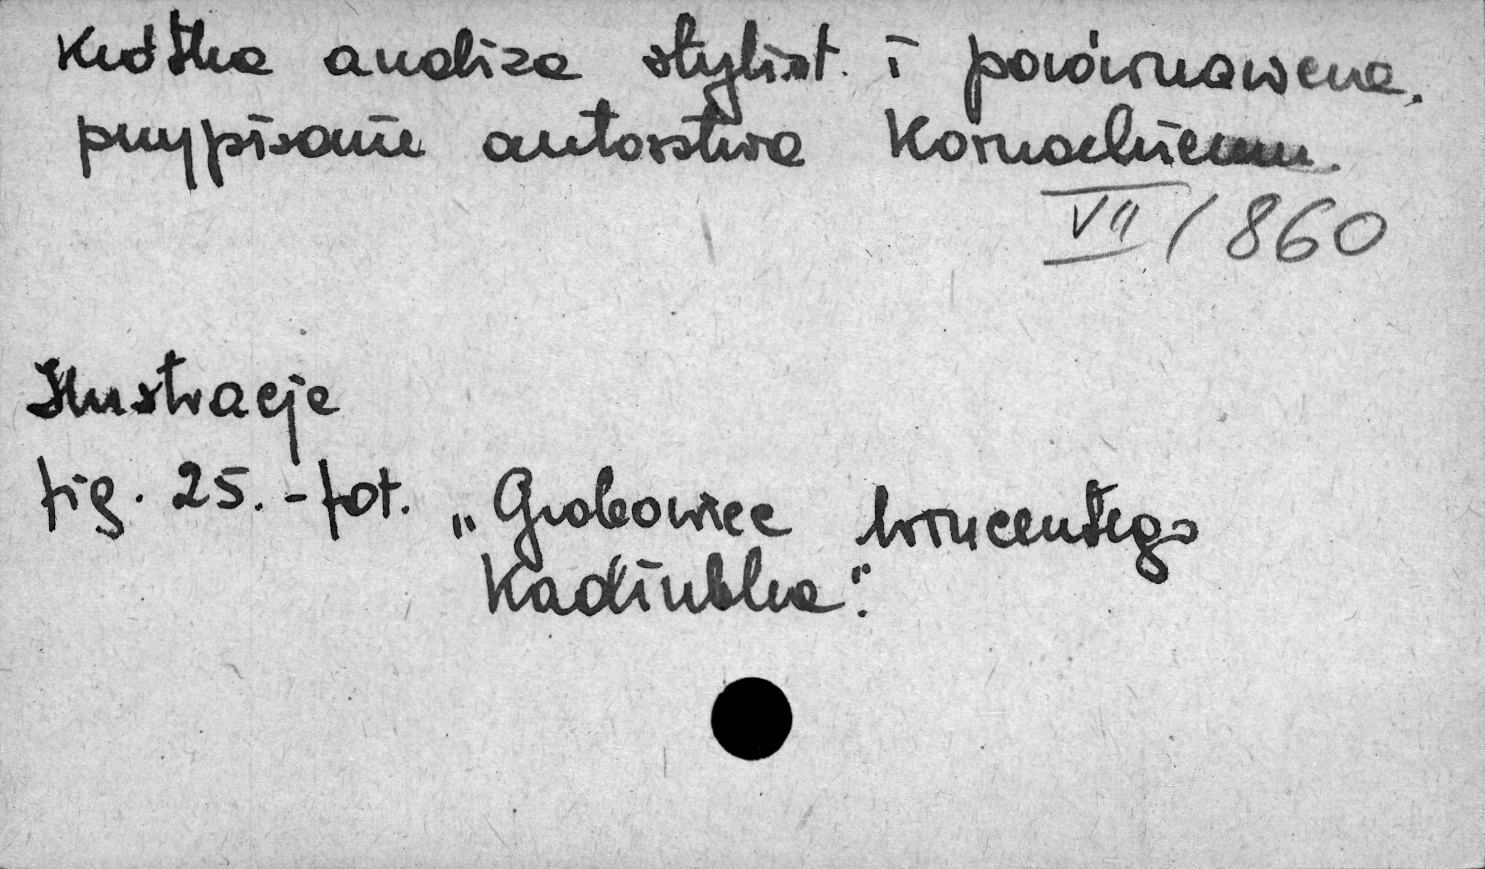 Krótka analiza stylist. i porównawcza,
przypisanie autorstwa Kornackiemu.
VII / 860
Ilustracje
fig. 25. - fot. „Grobowiec Wincentego
Kadłubka".